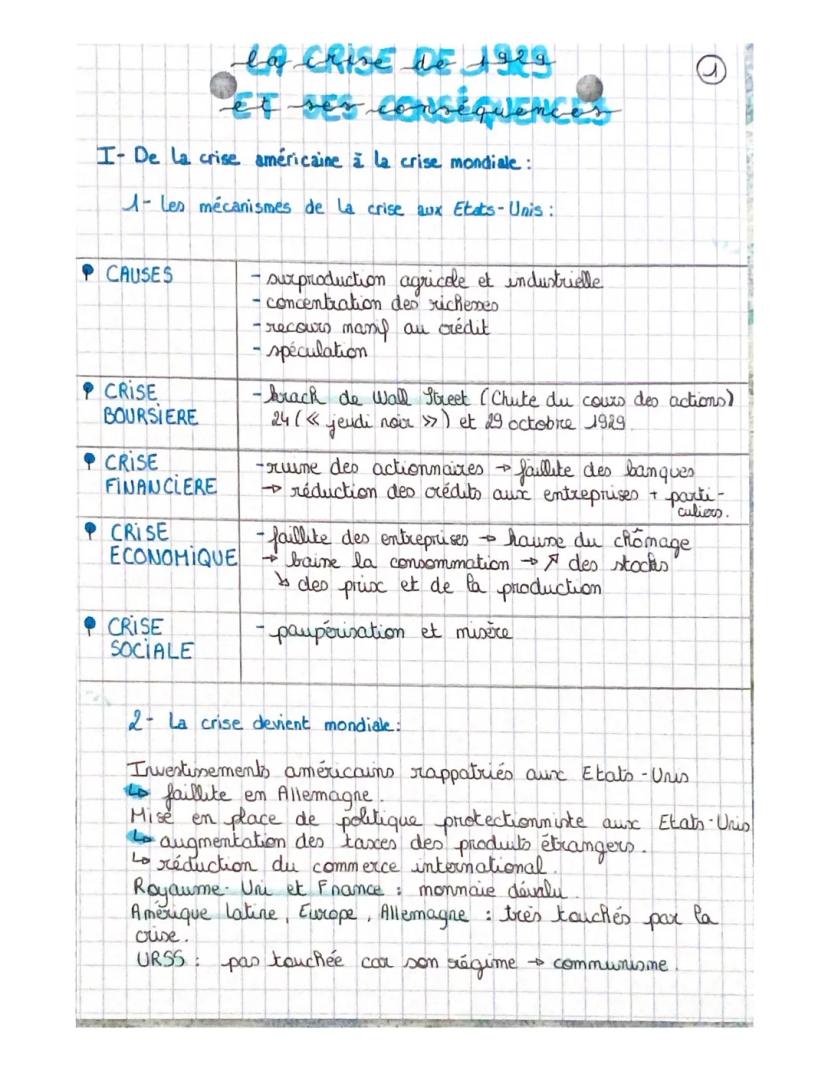 La CRISE DE 1929
①
ET SES CONSÉQUENCES
I- De la crise américaine à la crise mondiale :
1- Les mécanismes de la crise aux Etats-Unis :
CAUSES
- surproduction agricole et industrielle
- concentration des richesses
- recours massif au crédit
- spéculation
CRISE BOURSIERE
- krach de Wall Street (Chute du cours des actions)
24 (« jeudi noir ») et 29 octobre 1929.
CRISE FINANCIERE
- ruine des actionnaires → faillite des banques
→ réduction des crédits aux entreprises + parti-
culiers.
CRISE ECONOMIQUE
- faillite des entreprises → hausse du chômage
→ baisse la consommation → ↗ des stocks
↘ des prix et de la production
CRISE SOCIALE
- paupérisation et misère
2- La crise devient mondiale :
Investissements américains rappatriés aux Etats-Unis
↳ faillite en Allemagne.
Mise en place de politique protectionniste aux Etats-Unis
↳ augmentation des taxes des produits étrangers.
↳ réduction du commerce international.
Royaume-Uni et France : monnaie dévalu.
Amérique latine, Europe, Allemagne : très touchés par la
crise.
URSS : pas touchée car son régime → communisme.